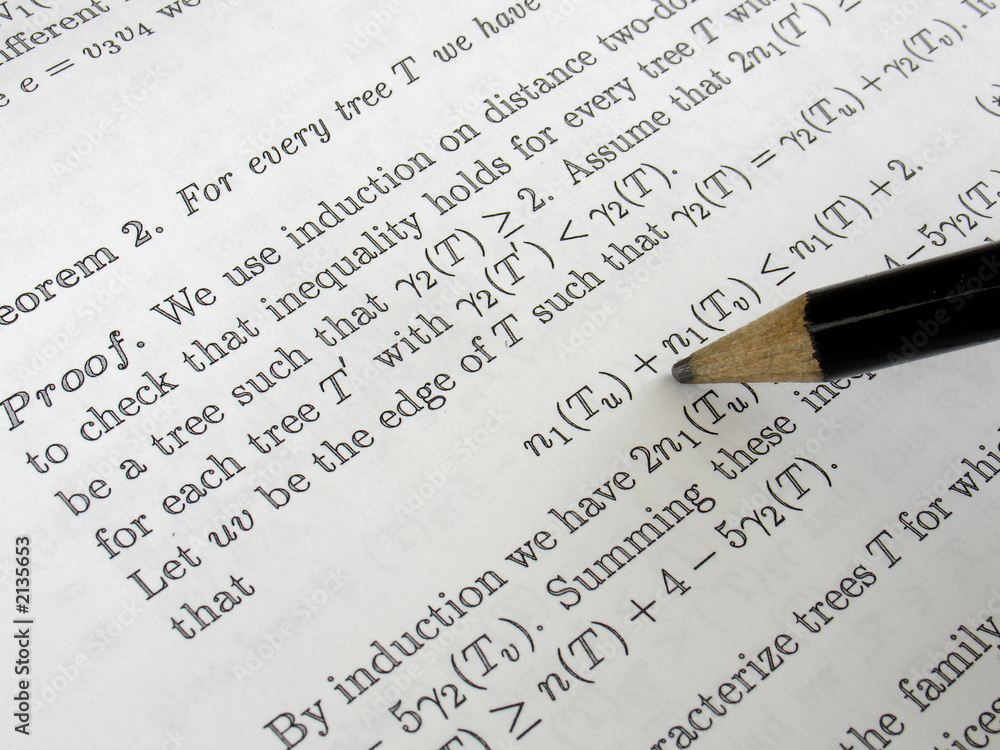 ifferent
e e = v₃v₄ we
eorem 2. For every tree T we have
Proof. We use induction on distance two-do
to check that inequality holds for every tree T wi
be a tree such that γ₂(T) ≥ 2. Assume that 2n₁(T′) ≥
for each tree T′ with γ₂(T′) < γ₂(T).
Let uv be the edge of T such that γ₂(T) = γ₂(Tᵤ) + γ₂(Tᵥ). It
that
n₁(Tᵤ) + n₁(Tᵥ) ≤ n₁(T) + 2.
By induction we have 2n₁(Tᵤ) 4−5γ₂(T
− 5γ₂(Tᵥ). Summing these ineq
(T) ≥ n(T) + 4 − 5γ₂(T).
racterize trees T for whi
the family
ices
Adobe Stock | #2135653